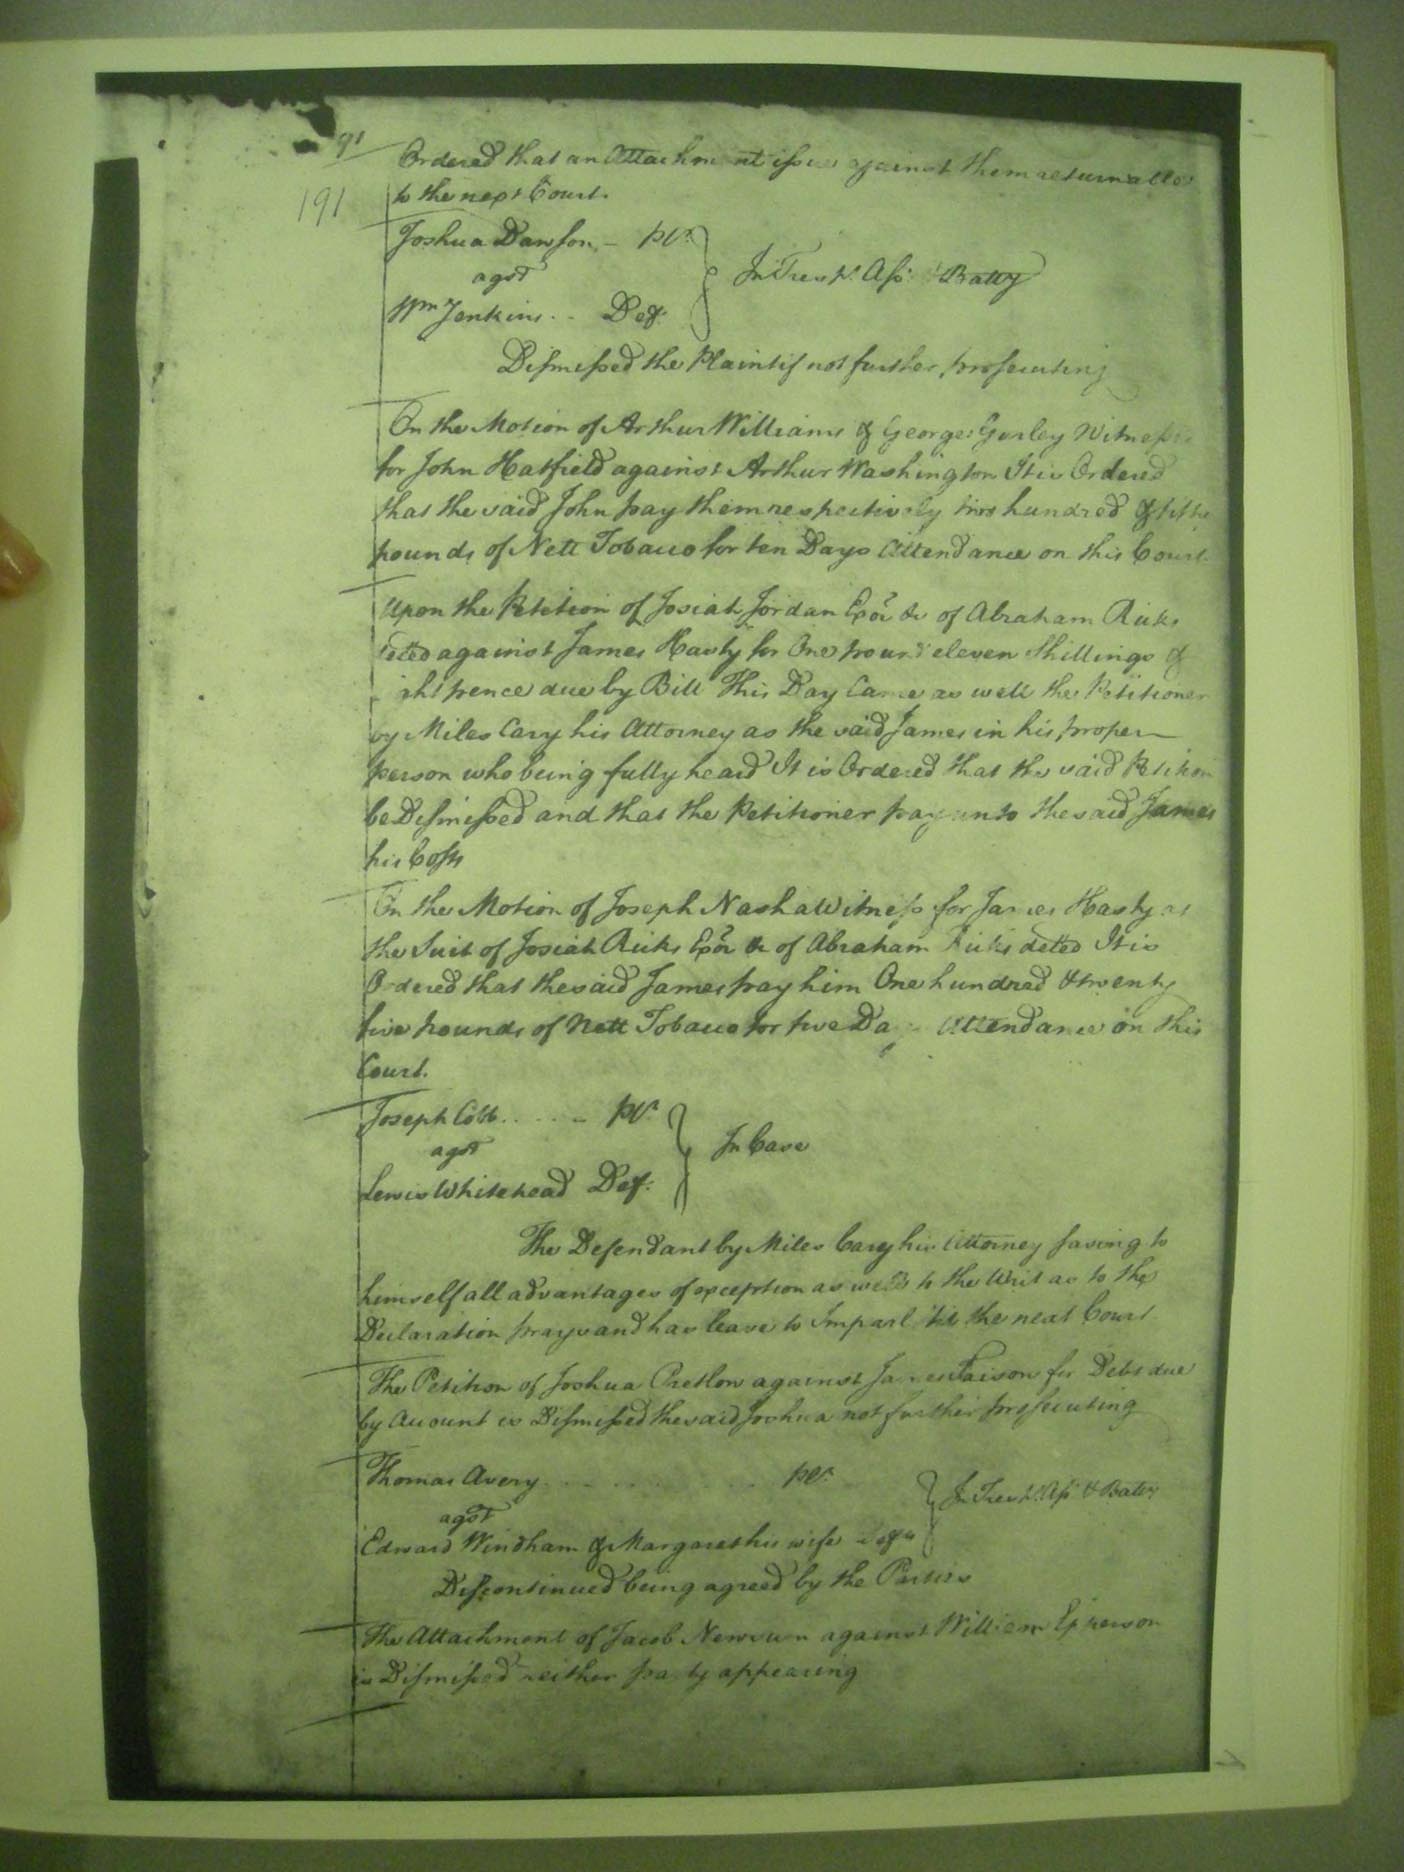 91
191
Ordered that an Attachment issue against them returnable
to the next Court.
Joshua Dawson - plt.
agst
Wm Jenkins .. Def.
In Tresp. Ass. & Batty
Dismissed the Plaintif not further prosecuting
On the Motion of Arthur Williams & George Gurley Witnesses
for John Hatfield against Arthur Washington It is Ordered
that the said John pay them respectively two hundred & fifty
pounds of Nett Tobacco for ten Days Attendance on this Court
Upon the Petition of Josiah Jordan Exor &c of Abraham Ricks
deced against James Hasty for One pound eleven Shillings &
pence due by Bill This Day Came as well the Petitioner
by Miles Cary his Attorney as the said James in his proper
person who being fully heard It is Ordered that the said Petition
be Dismissed and that the Petitioner pay unto the said James
his Costs
On the Motion of Joseph Nash a Witness for James Hasty at
the Suit of Josiah Ricks Exor &c of Abraham Ricks deced It is
Ordered that the said James pay him One hundred & twenty
five pounds of Nett Tobacco for five Days Attendance on this
Court.
Joseph Cobb ..... plt.
agst
Lewis Whitehead Def.
In Case
The Defendant by Miles Cary his Attorney saving to
himself all advantages of exception as well to the Writ as to the
Declaration prays and has leave to Imparl 'till the next Court
The Petition of Joshua Pretlow against James Faison for Debt due
by Account is Dismissed the said Joshua not further prosecuting
Thomas Avery ........ plt.
agst
Edward Windham & Margaret his wife Defts
In Tresp. Ass. & Batty
Discontinued being agreed by the Parties
The Attachment of Jacob Newsum against William Epperson
is Dismissed neither party appearing